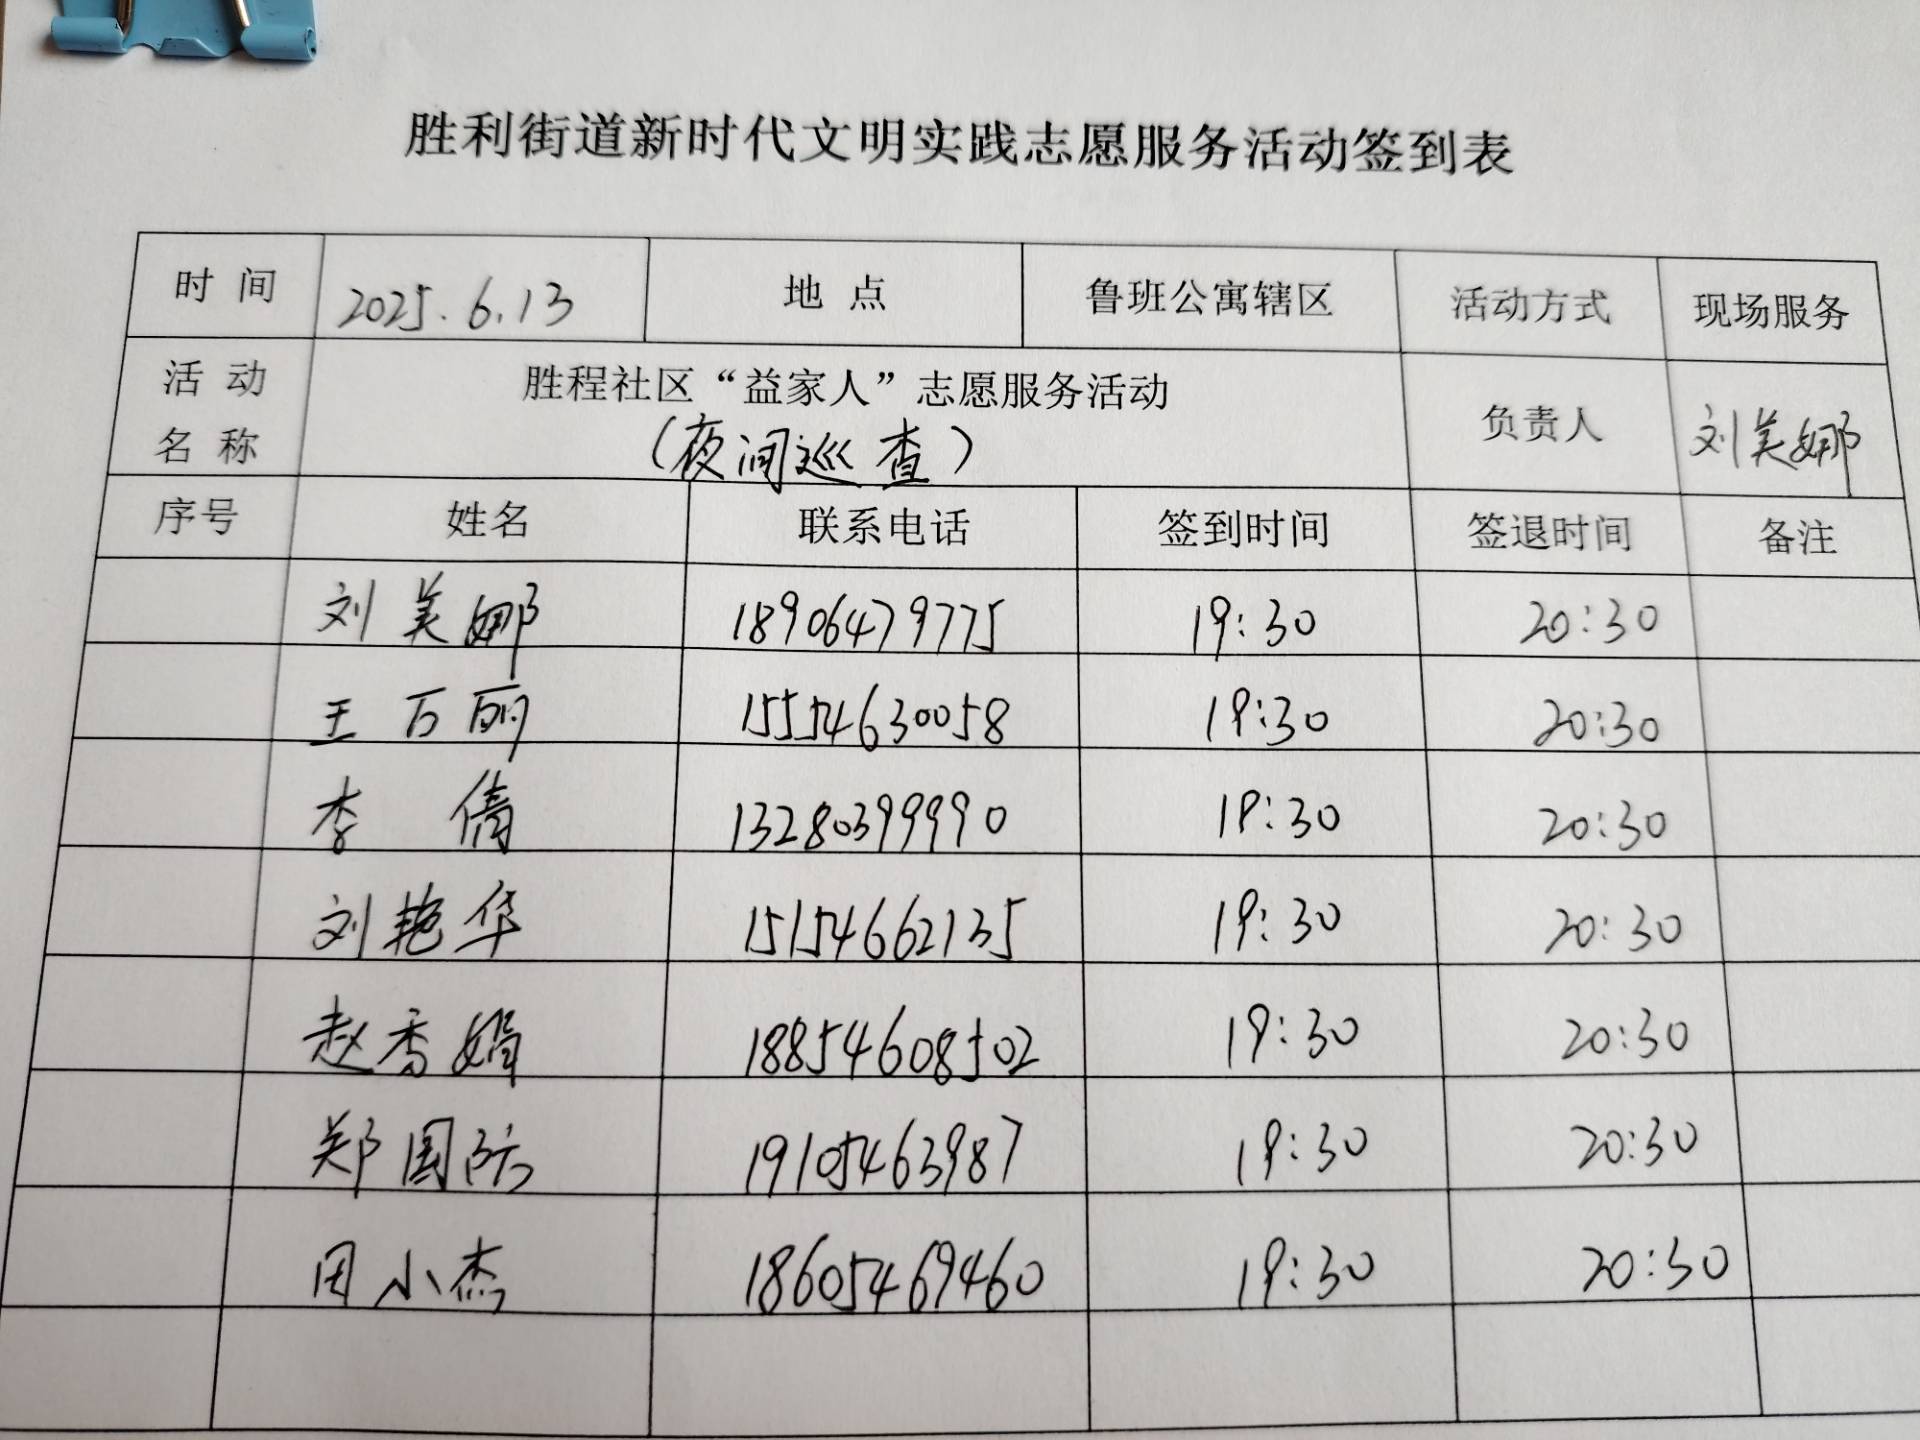 胜利街道新时代文明实践志愿服务活动签到表
时 间 2025.6.13 地 点 鲁班公寓辖区 活动方式 现场服务
活 动 名 称 胜程社区“益家人”志愿服务活动 负责人 刘美娜
(夜间巡查)
序号 姓名 联系电话 签到时间 签退时间 备注
刘美娜 18906479775 19:30 20:30
王百丽 15554630058 19:30 20:30
李倩 13280399990 19:30 20:30
刘艳华 15154662135 19:30 20:30
赵香娟 18854608502 19:30 20:30
郑国防 19105463987 19:30 20:30
田小杰 18605469460 19:30 20:30